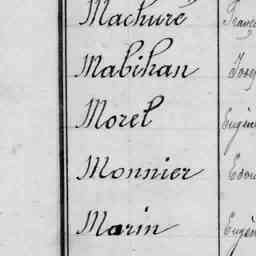 Machuré
Mabihan
Morel
Monnier
Marin